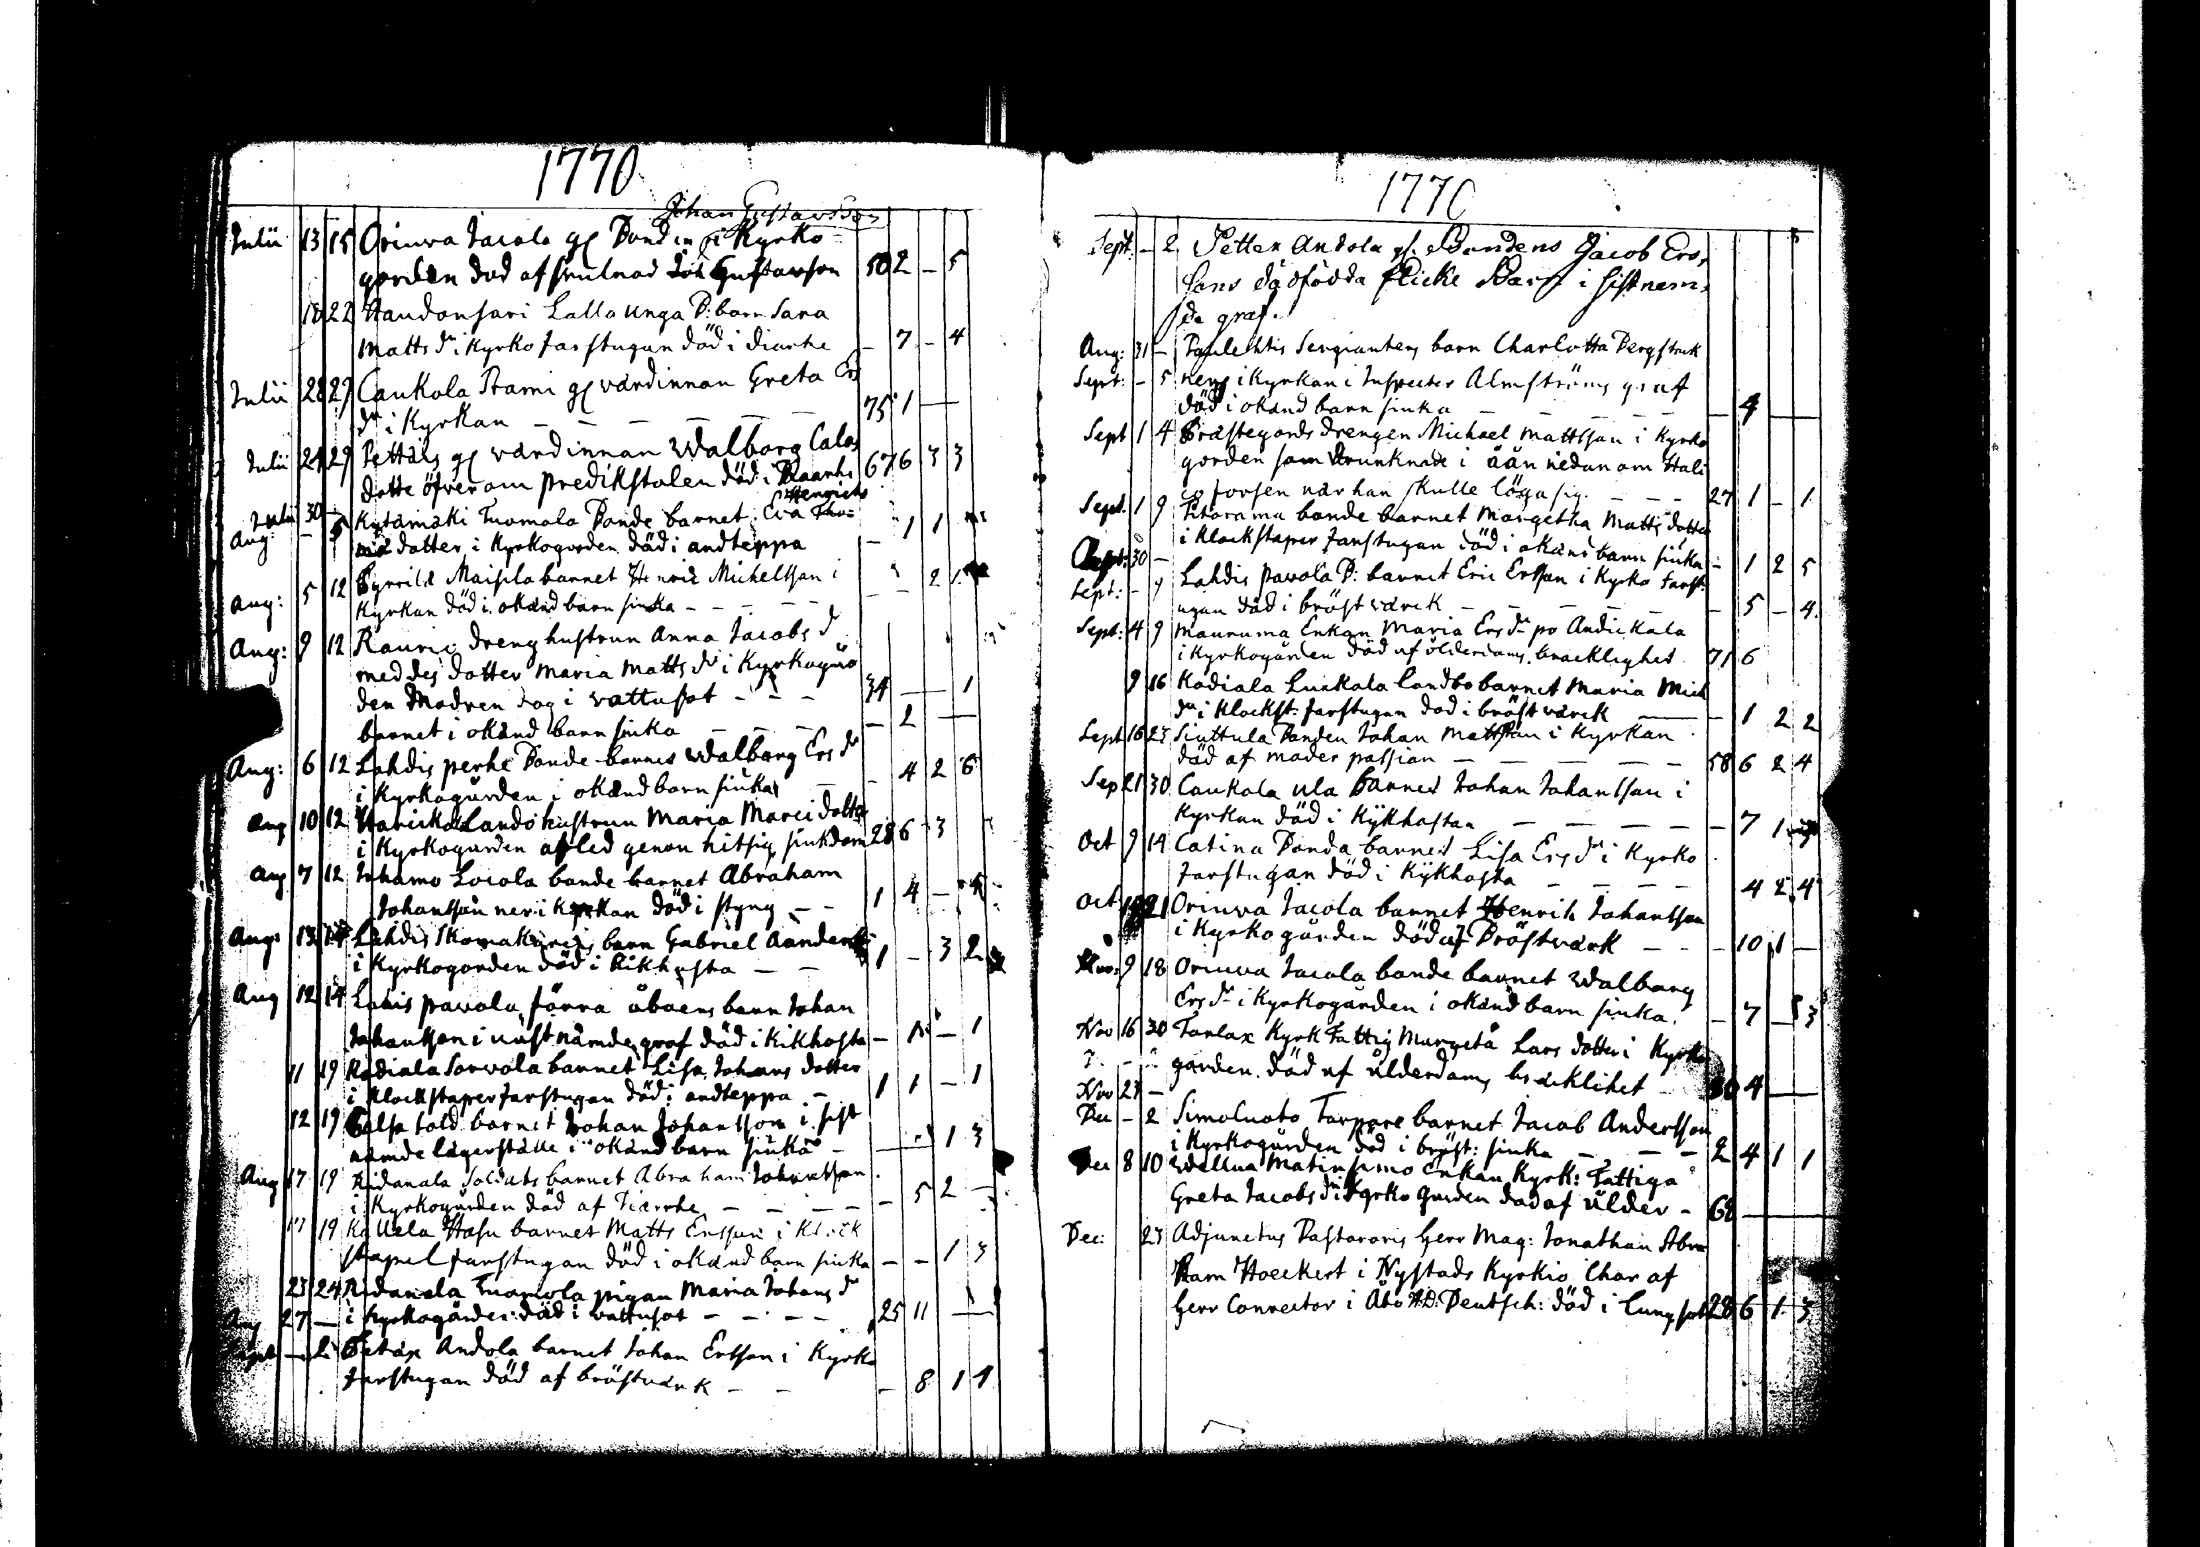 1770
Johan Gustavsson
Julii 13 15 Oriwva Jacola gl Bonden i Kyrko
gorden död af Johan Gustavson 50 2 - 5
18 22 Haudonsari Lalla unga B: barn Sara
Matts dr i Kyrko farstugan död i diarhe - 7 - 4
Julii 28 29 Caukola Prami gl värdinnan Greta Ers
dr i Kyrkan - - - - 75 1 -
Julii 24 29 gl värdinnan Walborg Calas
dotte öfver om predikstolen död i 67 6 3 3
Henrichs
Julii 30 - Kytämäki Tuomola Bonde barnet
Aug: - 5 dotter i Kyrkogorden död i andteppa - 1 1
Aug: 5 12 Maisila barnet Henric Michelsson i
Kyrkan död i okänd barn siuka - - - - - 2 1
Aug: 9 12 drenghustrun Anna Jacobs d
med des dotter Maria Matts dr i Kyrkogår
den Modren dog i vattusot - - - 34 - 1
barnet i okänd barn siuka - - - - 2 -
Aug: 6 12 Lahdis perhe Bonde barnet Walborg Ers dr
i Kyrkogården i okänd barn siuka - - 4 2 6
Aug 10 12 hustrun Maria Marci dotter
i Kyrkogården afled genom hitsig siukdom 28 6 - 3
Aug 7 12 Juhamo Locola bonde barnet Abraham
Johansson ner i Kyrkan död i styng - - 1 4 - 4
Aug: 13 14 Lahdis Skomakaris barn Gabriel
i Kyrkogorden död i Kikhosta - - 1 - 3 2
Aug 12 14 Lahis pavola förra åboens barn Johan
Johansson i näst nämde graf död i Kikhosta - - 1
11 19 Kodiala Sorvola barnet Lisa Johans dotter
i Klockstaper farstugan död i andteppa - 1 1 - 1
12 19 sold barnet Johan Johansson i sist
nämde lägerställe i okänd barn siuka - - - 1 3
Aug 17 19 Kidanala Soldats barnet Abraham Johansson
i Kyrkogården död af Tiarrhe - - - - - 5 2 -
17 19 Kallela Hasu barnet Matts Ersson i Klock
stapel farstugan död i okänd barn siuka - - 1 3
23 24 Ridanala Tuomola pigan Maria Johans dr
Aug 27 - i Kyrkogården död i vattusot - - - - 25 11 -
Sept - 2 Andola barnet Johan Ersson i Kyrko
farstugan död af bröstvärk - - - 8 1 4
1770
Sept. - 2 Petter Andola gl. Bondens Jacob Ers,
Sons dödfödda flicke Barn i sistnem,
da graf.
Aug: 31 - Sergiantens barn Charlotta Bergstruk
Sept: - 5 i Kyrkan i Inspector Almströms graf
död i okänd barn siuka - - - - - 4 - -
Sept 1 4 Prästegords drengen Michael Mattsson i Kyrko
gorden som drunknade i åån nedan om Hali
co forsen när han skulle löga sig. - - - 27 1 - 1
Sept. 1 9 bonde barnet Margetha Matts dotter
i Klockstaper farstugan död i okänd barn siuka - 1 2 5
30 -
Sept: - 9 Lahdis pavola B: barnet Eric Ersson i Kyrko farst-
ugan död i bröstvärck - - - - - 5 - 4
Sept: 4 9 Mauruma Enkan Maria Ers dr po Andickala
i Kyrkogården död af ölderdoms bräcklighet 71 6
9 16 Kodiala Luukala Landbo barnet Maria Mich
dr i Klockst: farstugan död i bröstvärck - 1 2 2
Sept 16 23 Siuttula Bonden Johan Mattsson i Kyrkan
död af moder passian - - - - 58 6 2 4
Sep 21 30 Caukola ula barnet Johan Johansson i
Kyrkan död i Kykhostan - - - - - 7 1
Oct 9 14 Catina Bonda barnet Lisa Ers dr i Kyrko
farstugan död i Kykhosta - - - - 4 2 4
Oct 21 Oriuva Jacola barnet Henrik Johansson
i Kyrkogården död af Bröstvärk - - - 10 1 -
Nov: 9 18 Oriuva Jacola bonde barnet Walborg
Ers dr i Kyrkogården i okänd barn siuka. - 7 - 3
Nov 16 30 Torlax Kyrk Fattig Margeta Lars dotter i Kyrko
gården död af ålderdoms bräcklihet - 80 4 - -
Nov 23 -
Dec - 2 Simoluoto Torpare barnet Jacob Andersson
i Kyrkogården död i bröst: siuka - - - 2 4 1 1
Dec 8 10 Wellua Enkan Kyrk: Fattiga
Greta Jacobs dr i Kyrko gården död af ålder - 68 - -
Dec: 23 Adjunctus Pastororis Herr Mag: Jonathan Abra
ham Hoeckert i Nystads Kyrkio Char af
Herr Conrector i Åbo Deutsch: död i lungsot 28 6 1 3